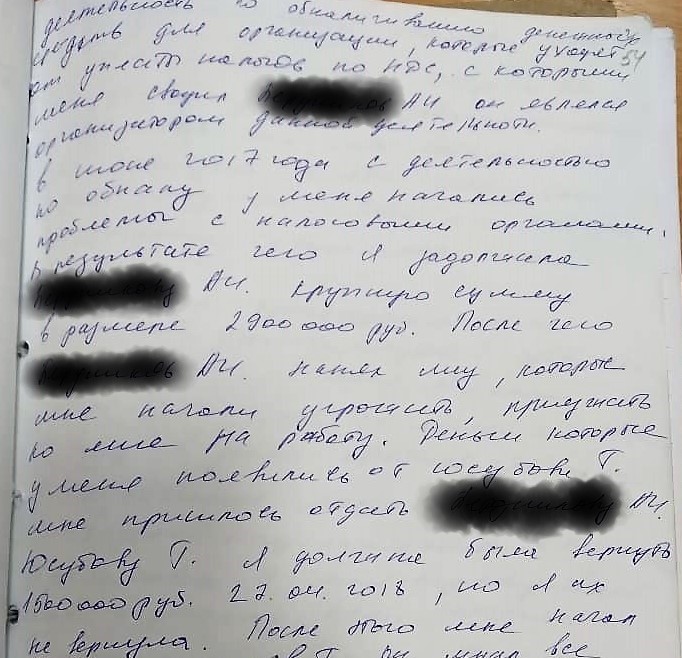 деятельность по обналичиванию денежных
средств для организации, которые уходят 54
от уплаты налогов по НДС, с которыми
меня сводил АИ он являлся
организатором данной деятельности.
в июне 2017 года с деятельностью
по обналу у меня начались
проблемы с налоговыми органами,
в результате чего я задолжала
АИ. крупную сумму
в размере 2900000 руб. После чего
АИ. нанял лиц, которые
мне начали угрожать, приезжать
ко мне на работу. Деньги которые
у меня появились от Юсубова Т.
мне пришлось отдать АИ.
Юсубову Т. я должна была вернуть
1500000 руб. 27.04.2018, но я их
не вернула. После этого мне начал
Т. все